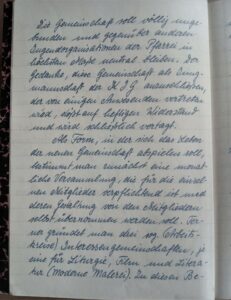 Die Gemeinschaft soll völlig unge-
bunden und gegenüber anderen
Jugendorganisationen der Pfarrei in
höchstem Maße neutral bleiben. Der
Gedanke, diese Gemeinschaft als Jung-
mannschaft der K J G auszubauen,
der von einigen Anwesenden vertreten
wird, stößt auf heftigen Widerstand
und wird schließlich vertagt.
Als Form, in der sich das Leben
der neuen Gemeinschaft abspielen soll,
bestimmt man zunächst eine monat-
liche Versammlung, die für die einzel-
nen Mitglieder verpflichtend ist und
deren Gestaltung von den Mitgliedern
selbst übernommen werden soll. Fer-
ner gründet man drei sog. (Arbeits-
kreise) Interessengemeinschaften, je
eine für Liturgie, Film und Litera-
tur (Moderne Malerei). Zu diesen Be-